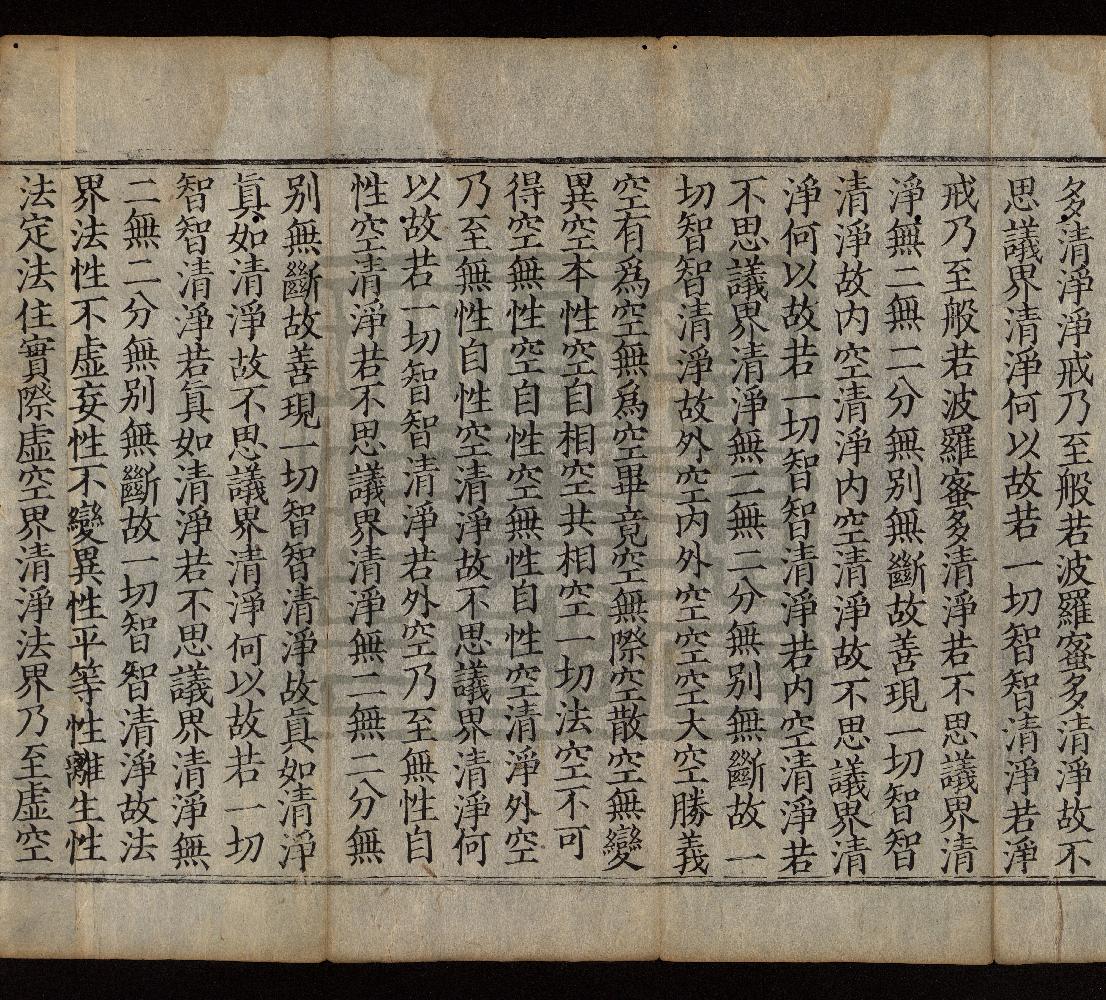 多清淨淨戒乃至般若波羅蜜多清淨故不
思議界清淨何以故若一切智智清淨若淨
戒乃至般若波羅蜜多清淨若不思議界清
淨無二無二分無别無斷故善現一切智智
清淨故内空清淨内空清淨故不思議界清
淨何以故若一切智智清淨若内空清淨若
不思議界清淨無二無二分無别無斷故一
切智智清淨故外空内外空空空大空勝義
空有爲空無爲空畢竟空無際空散空無變
異空本性空自相空共相空一切法空不可
得空無性空自性空無性自性空清淨外空
乃至無性自性空清淨故不思議界清淨何
以故若一切智智清淨若外空乃至無性自
性空清淨若不思議界清淨無二無二分無
别無斷故善現一切智智清淨故眞如清淨
眞如清淨故不思議界清淨何以故若一切
智智清淨若眞如清淨若不思議界清淨無
二無二分無别無斷故一切智智清淨故法
界法性不虛妄性不變異性平等性離生性
法定法住實際虛空界清淨法界乃至虛空